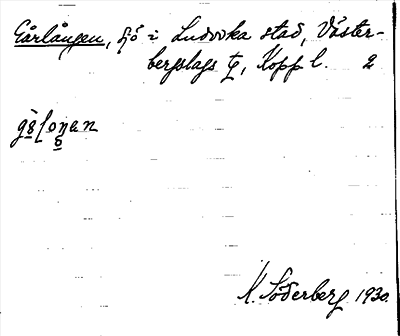 Gårlången, sjö i Ludvika stad, Väster-
bergslags tg, Kopp l. 2
M. Söderberg 1930.